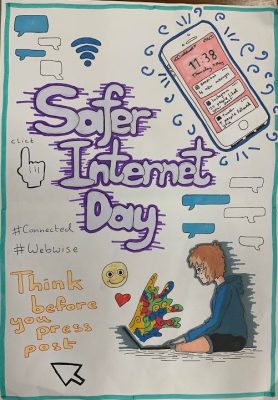 11:38
Safer
click
Internet
Day
#Connected
#Webwise
Think
before
you
press
post